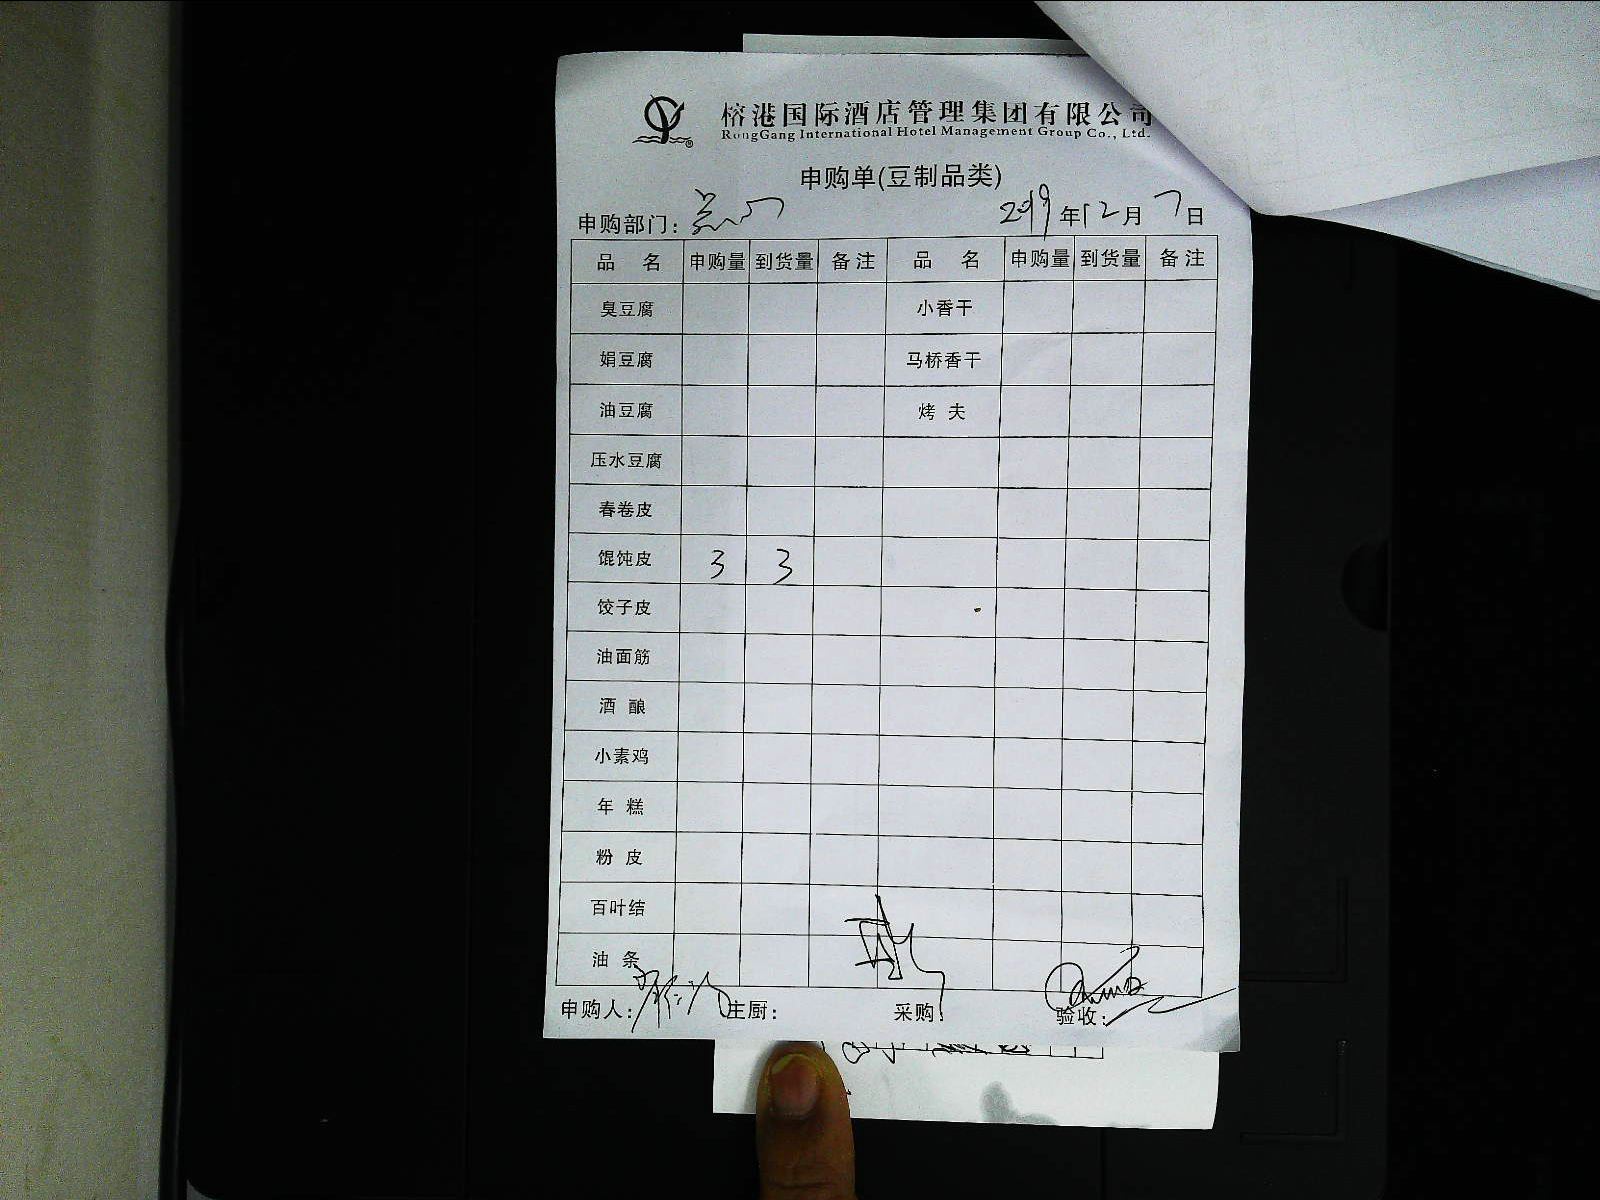 榕港国际酒店管理集团有限公司
RongGang International Hotel Management Group Co., Ltd.
申购单(豆制品类)
申购部门： 2019年12月7日
品 名 申购量 到货量 备注 品 名 申购量 到货量 备注
臭豆腐 小香干
娟豆腐 马桥香干
油豆腐 烤 夫
压水豆腐
春卷皮
馄饨皮 3 3
饺子皮
油面筋
酒 酿
小素鸡
年 糕
粉 皮
百叶结
油 条
申购人： 主厨： 采购： 验收：